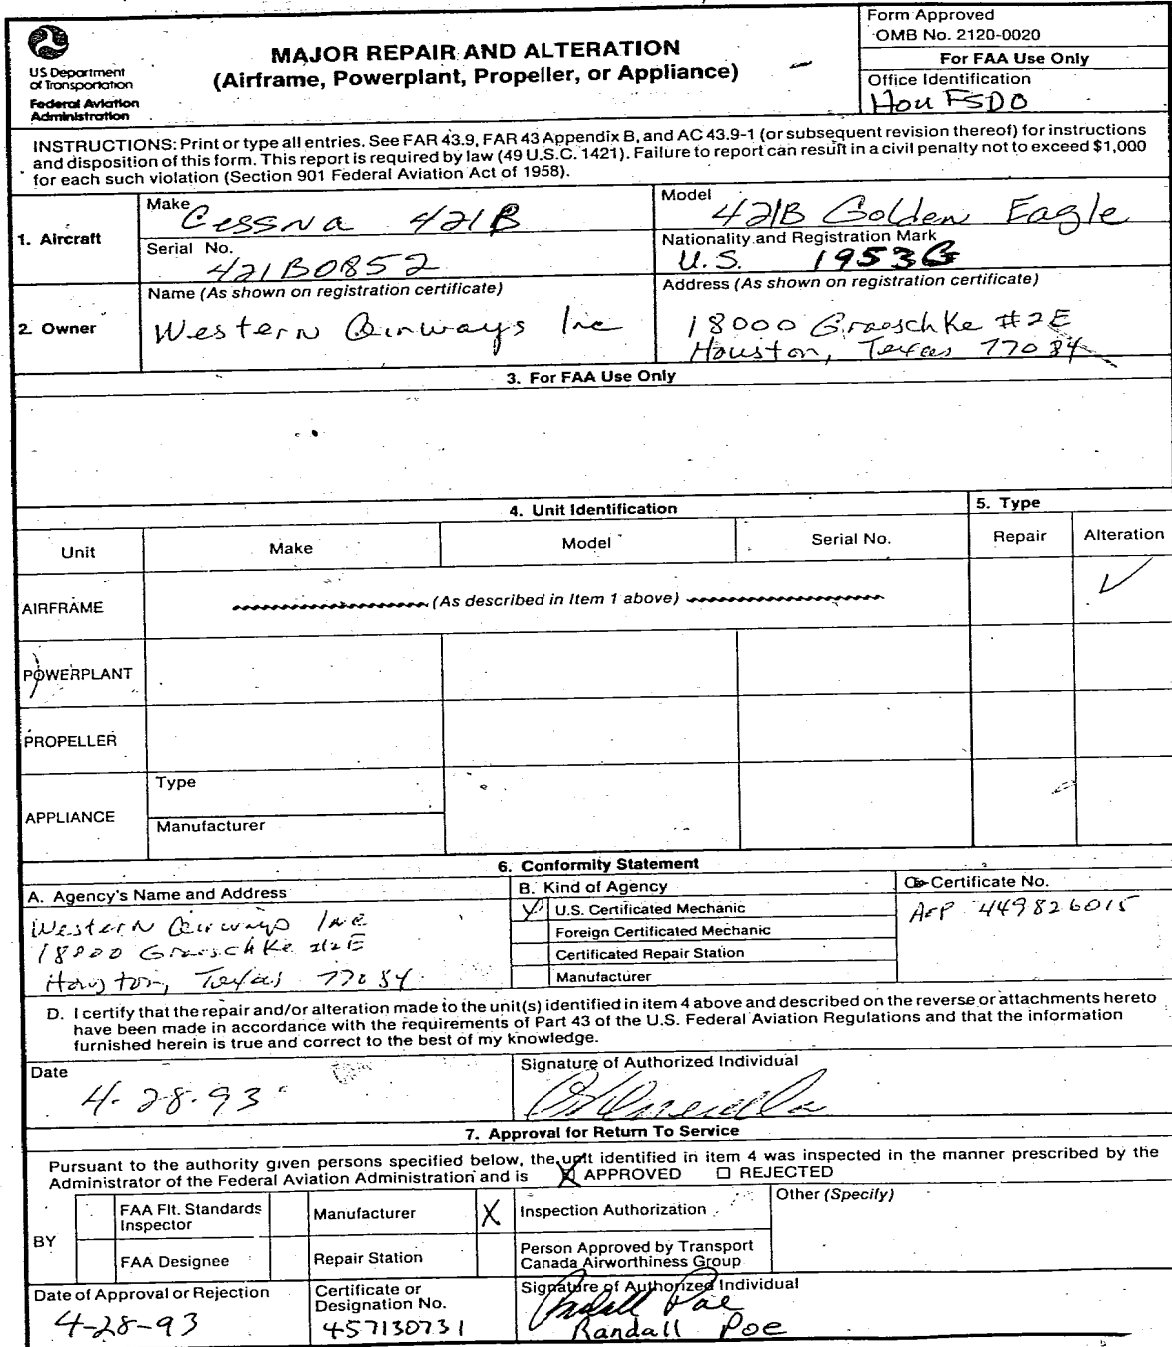 US Department
of Transportation
Federal Aviation
Administration
MAJOR REPAIR AND ALTERATION
(Airframe, Powerplant, Propeller, or Appliance)
Form Approved
OMB No. 2120-0020
For FAA Use Only
Office Identification
Hou FSDO
INSTRUCTIONS: Print or type all entries. See FAR 43.9, FAR 43 Appendix B, and AC 43.9-1 (or subsequent revision thereof) for instructions
and disposition of this form. This report is required by law (49 U.S.C. 1421). Failure to report can result in a civil penalty not to exceed $1,000
for each such violation (Section 901 Federal Aviation Act of 1958).
1. Aircraft
Make
Cessna 421B
Model
421B Golden Eagle
Serial No.
421B0852
Nationality and Registration Mark
U.S. 1953G
2. Owner
Name (As shown on registration certificate)
Western Airways Inc
Address (As shown on registration certificate)
18000 Groeschke #2E
Houston, Texas 77084
3. For FAA Use Only
4. Unit Identification
5. Type
Unit Make Model Serial No. Repair Alteration
AIRFRAME (As described in Item 1 above)
POWERPLANT
PROPELLER
APPLIANCE
Type
Manufacturer
6. Conformity Statement
A. Agency's Name and Address
Western Airways Inc
18000 Groeschke #2E
Houston, Texas 77084
B. Kind of Agency
U.S. Certificated Mechanic
Foreign Certificated Mechanic
Certificated Repair Station
Manufacturer
Certificate No.
A&P 449826015
D. I certify that the repair and/or alteration made to the unit(s) identified in item 4 above and described on the reverse or attachments hereto
have been made in accordance with the requirements of Part 43 of the U.S. Federal Aviation Regulations and that the information
furnished herein is true and correct to the best of my knowledge.
Date
4-28-93
Signature of Authorized Individual
7. Approval for Return To Service
Pursuant to the authority given persons specified below, the unit identified in item 4 was inspected in the manner prescribed by the
Administrator of the Federal Aviation Administration and is X APPROVED REJECTED
BY
FAA Flt. Standards
Inspector
Manufacturer
X Inspection Authorization
Other (Specify)
FAA Designee
Repair Station
Person Approved by Transport
Canada Airworthiness Group
Date of Approval or Rejection
4-28-93
Certificate or
Designation No.
457130731
Signature of Authorized Individual
Randall Poe
Randall Poe